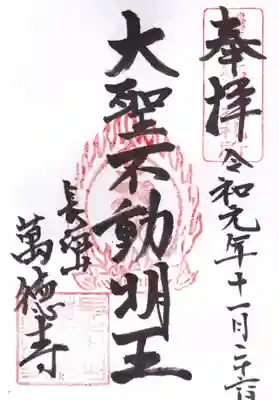 奉拝
令和元年十一月二十六日
大聖不動明王
萬徳寺